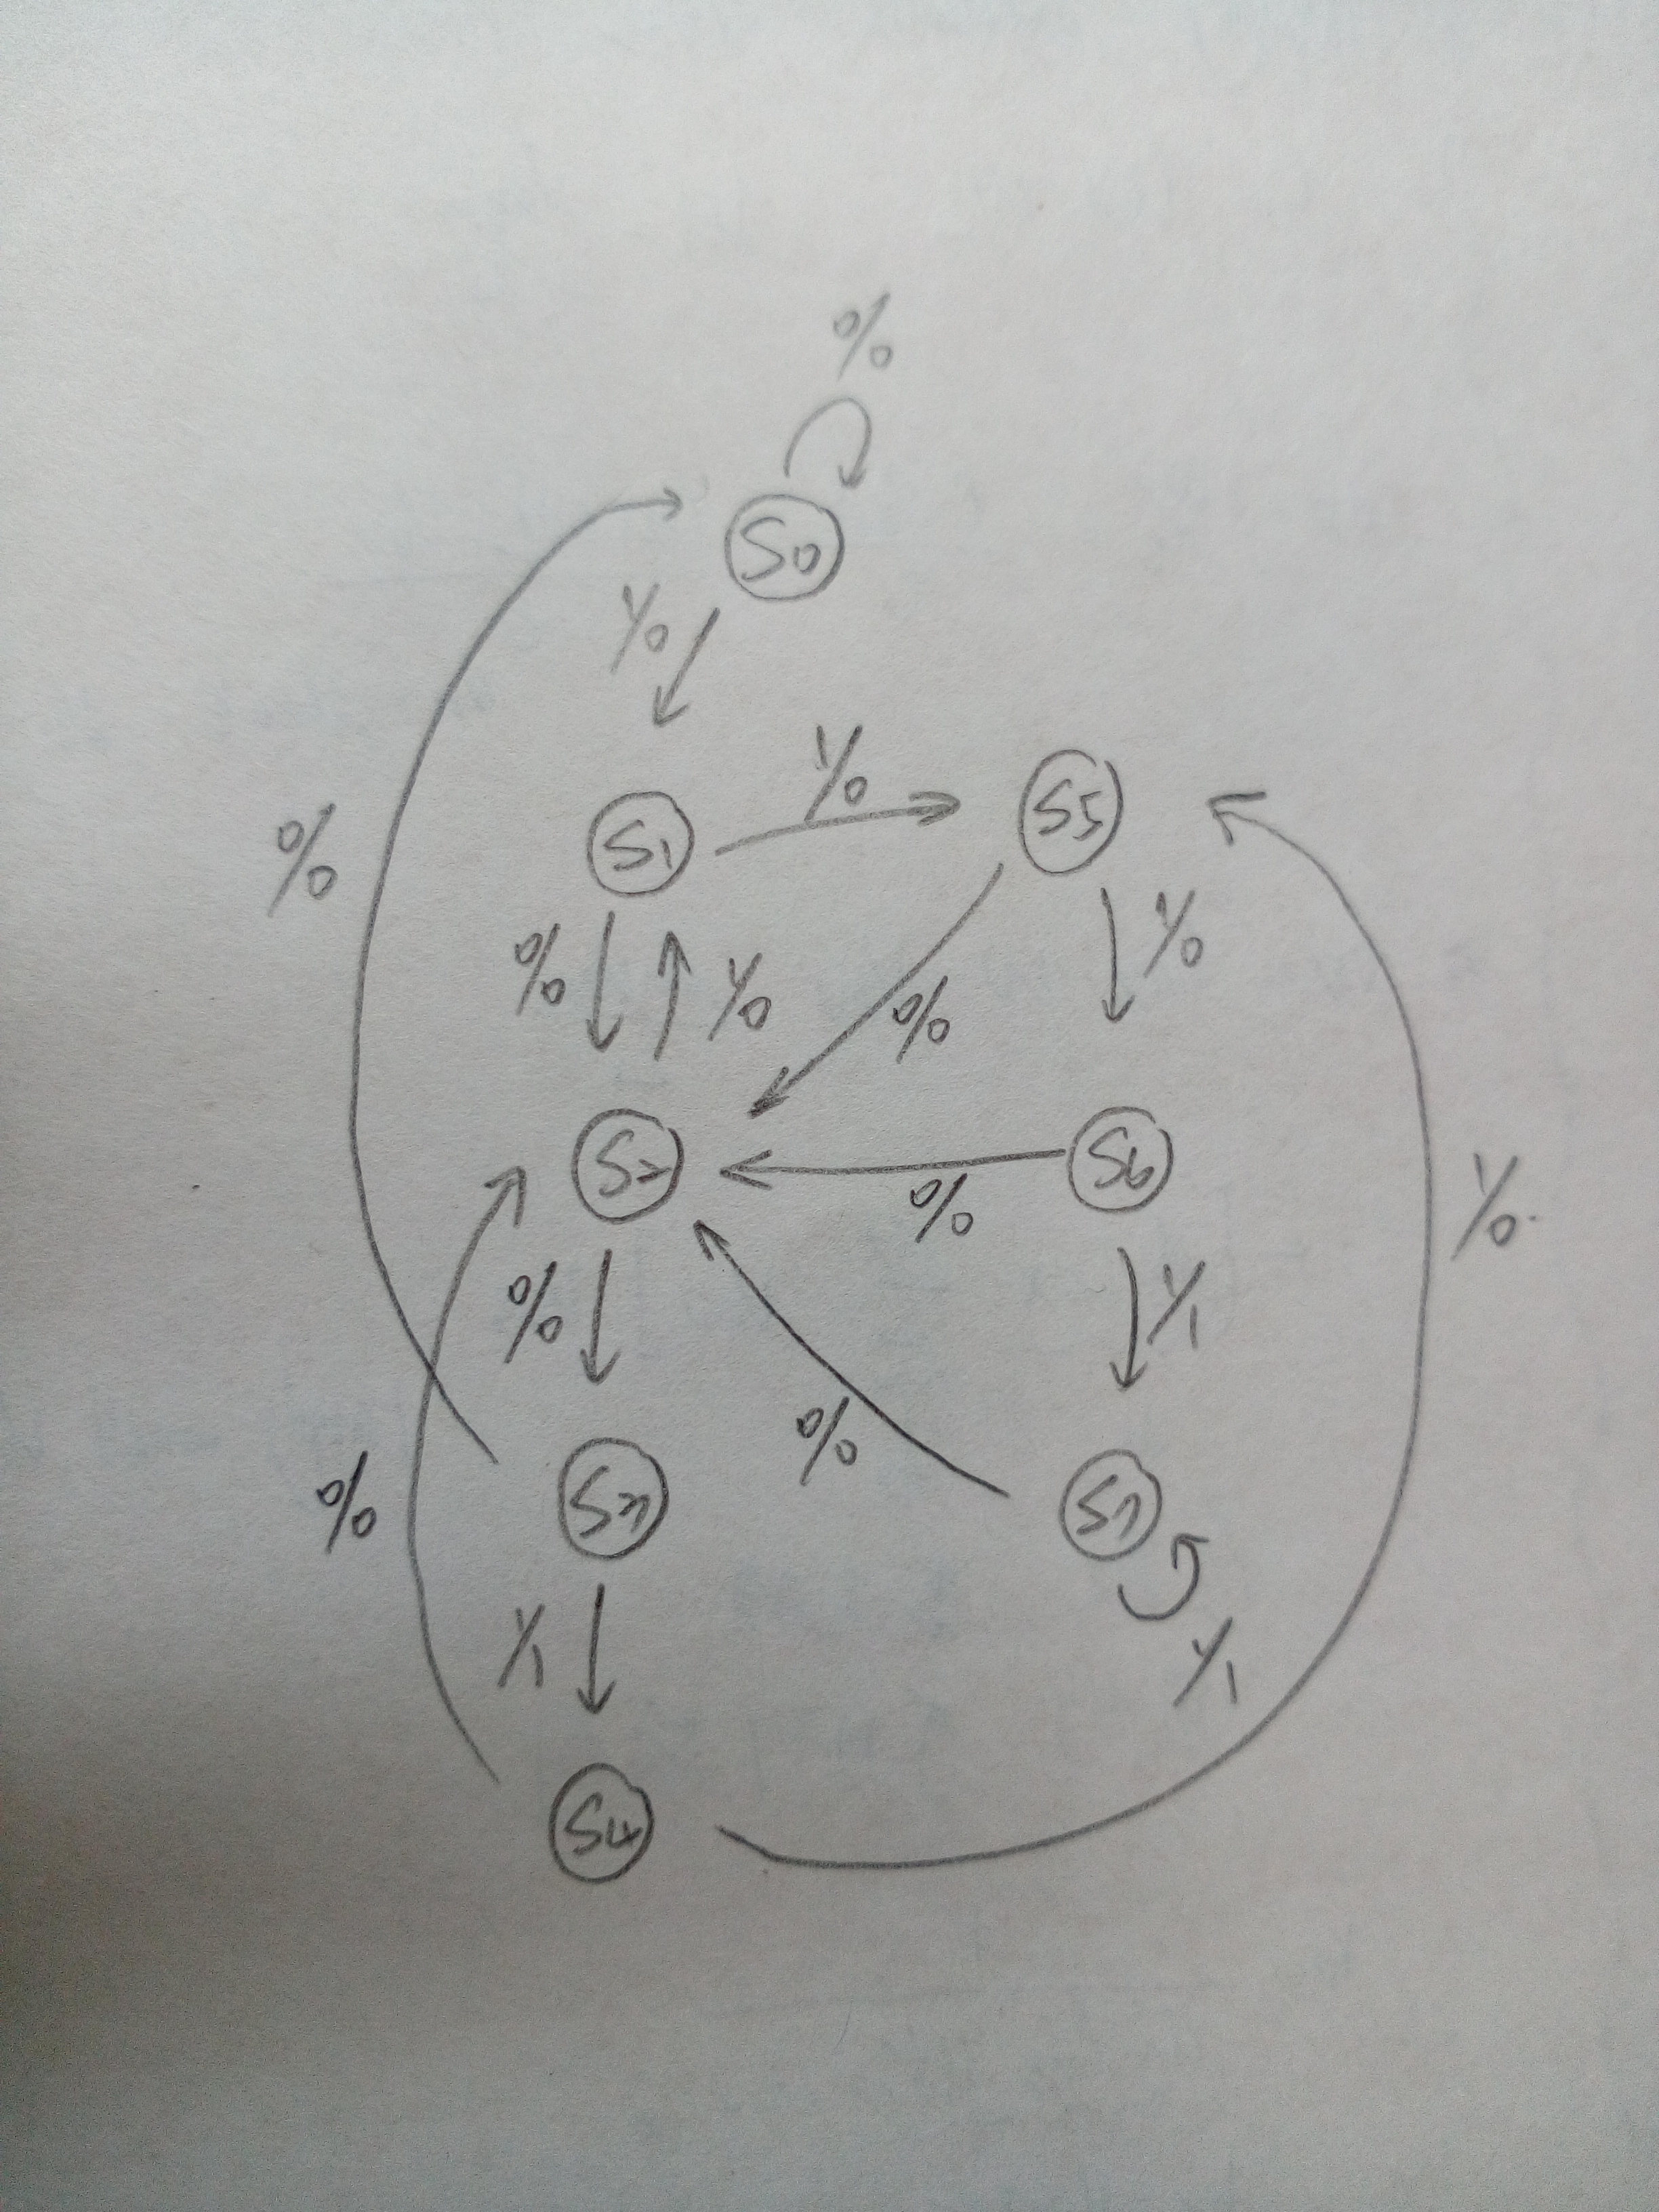 0/0
S0
1/0
1/0
S1
S5
0/0
0/0
1/0
1/0
0/0
S2
S6
0/0
1/0
0/0
1/1
0/0
0/0
S3
S7
1/1
1/1
S4